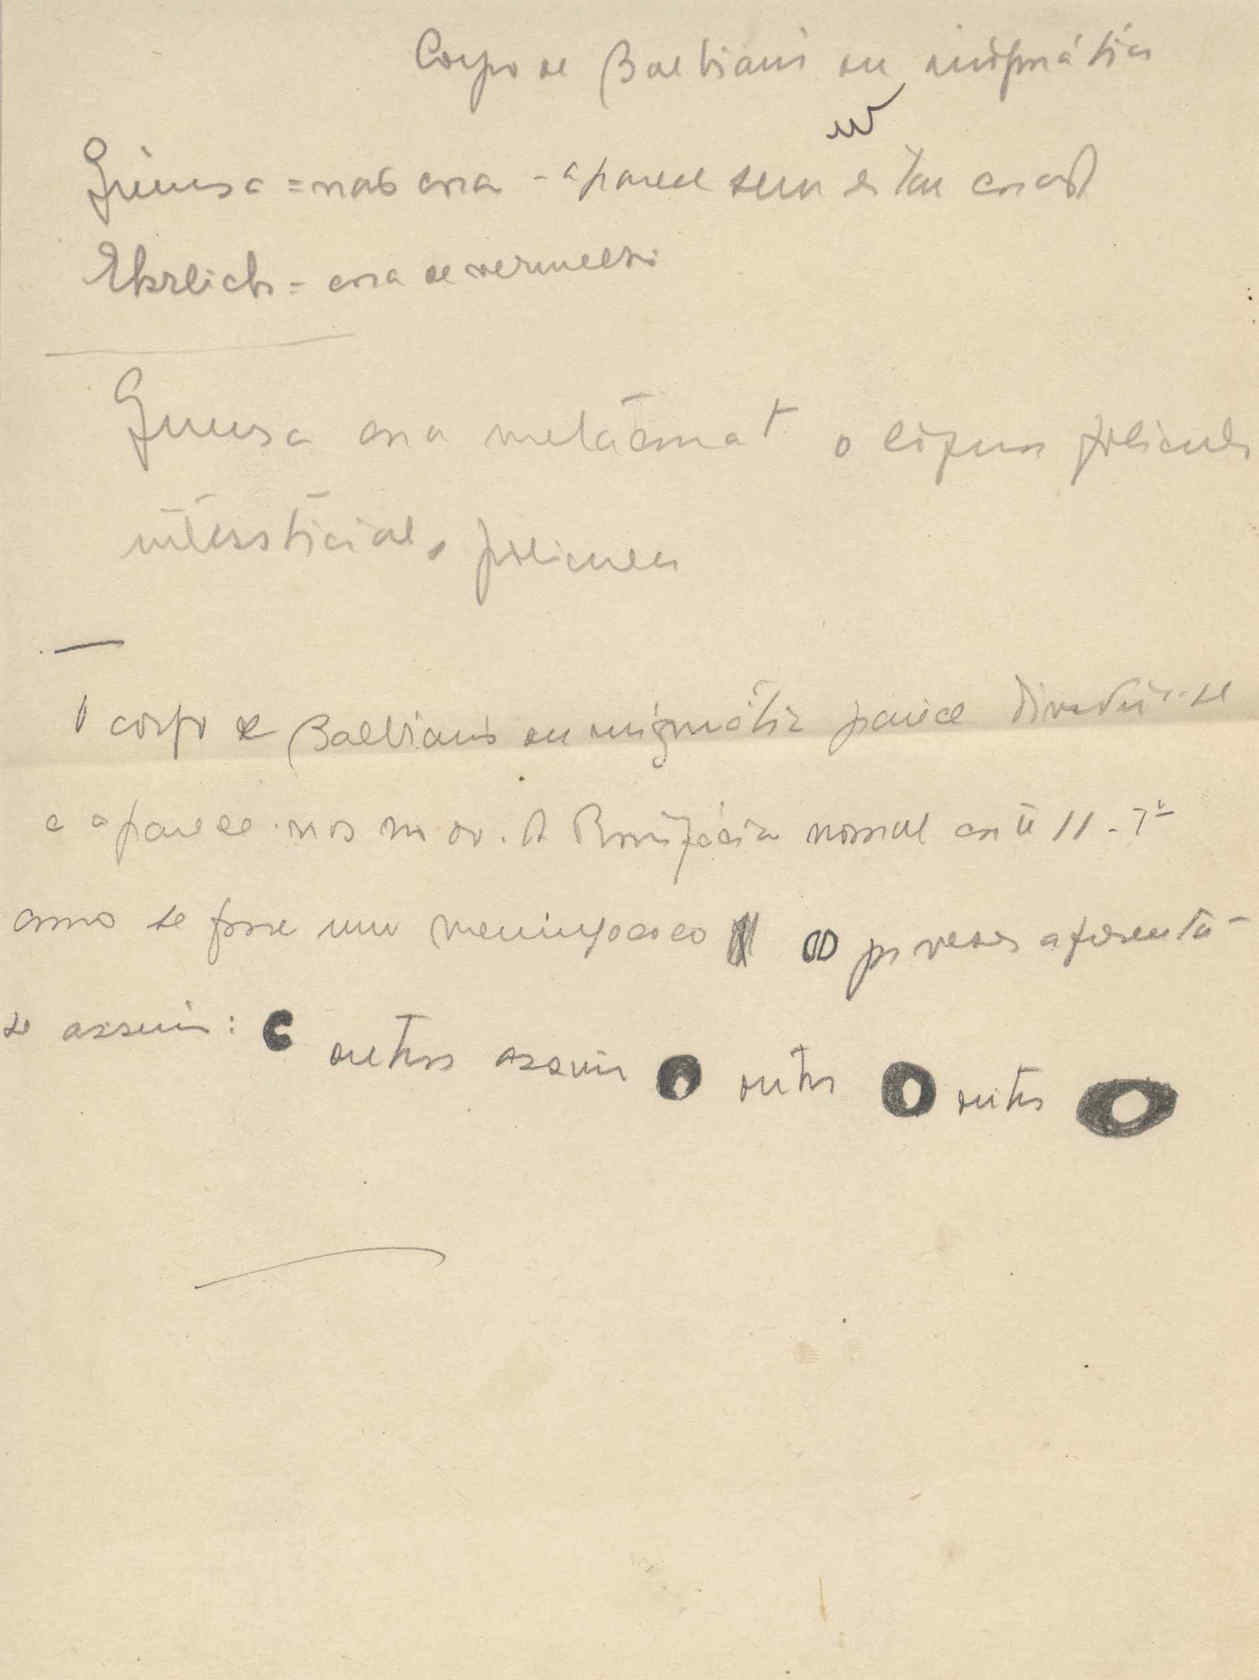 Corpo de Balbiani ou enigmático
Giemsa = não cora - aparece sem estar corado
Ehrlich = cora de vermelho
Giemsa cora o liquor folicular
intersticial, folicular
O corpo de Balbiani ou enigmático parece dividir-se
e aparece nos ov. A Bonifácia normal corte 11-7ª
como se fosse um meningococo por vezes apresenta-
se assim: outros assim outros outros